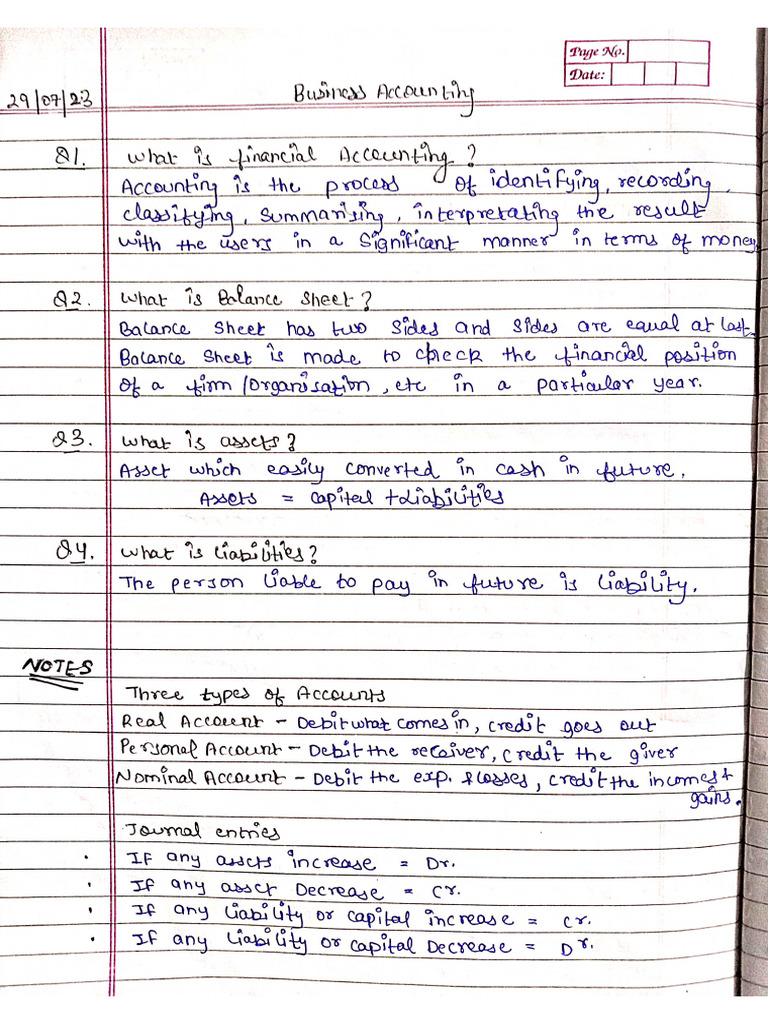 Page No.
Date:
29/07/23
Business Accounting
Q1. What is financial Accounting?
Accounting is the process of identifying, recording,
classifying, summarising, interpretating the result
with the users in a significant manner in terms of money.
Q2. What is Balance sheet?
Balance sheet has two sides and sides are equal at last.
Balance sheet is made to check the financial position
of a firm/organisation, etc in a particular year.
Q3. What is assets?
Asset which easily converted in cash in future.
Assets = capital + Liabilities
Q4. What is liabilities?
The person liable to pay in future is liability.
NOTES
Three types of Accounts
Real Account - Debit what comes in, credit goes out
Personal Account - Debit the receiver, credit the giver
Nominal Account - Debit the exp. & losses, credit the incomes +
gains.
Journal entries
• If any assets increase = Dr.
• If any asset Decrease = Cr.
• If any liability or capital increase = Cr.
• If any liability or capital Decrease = Dr.